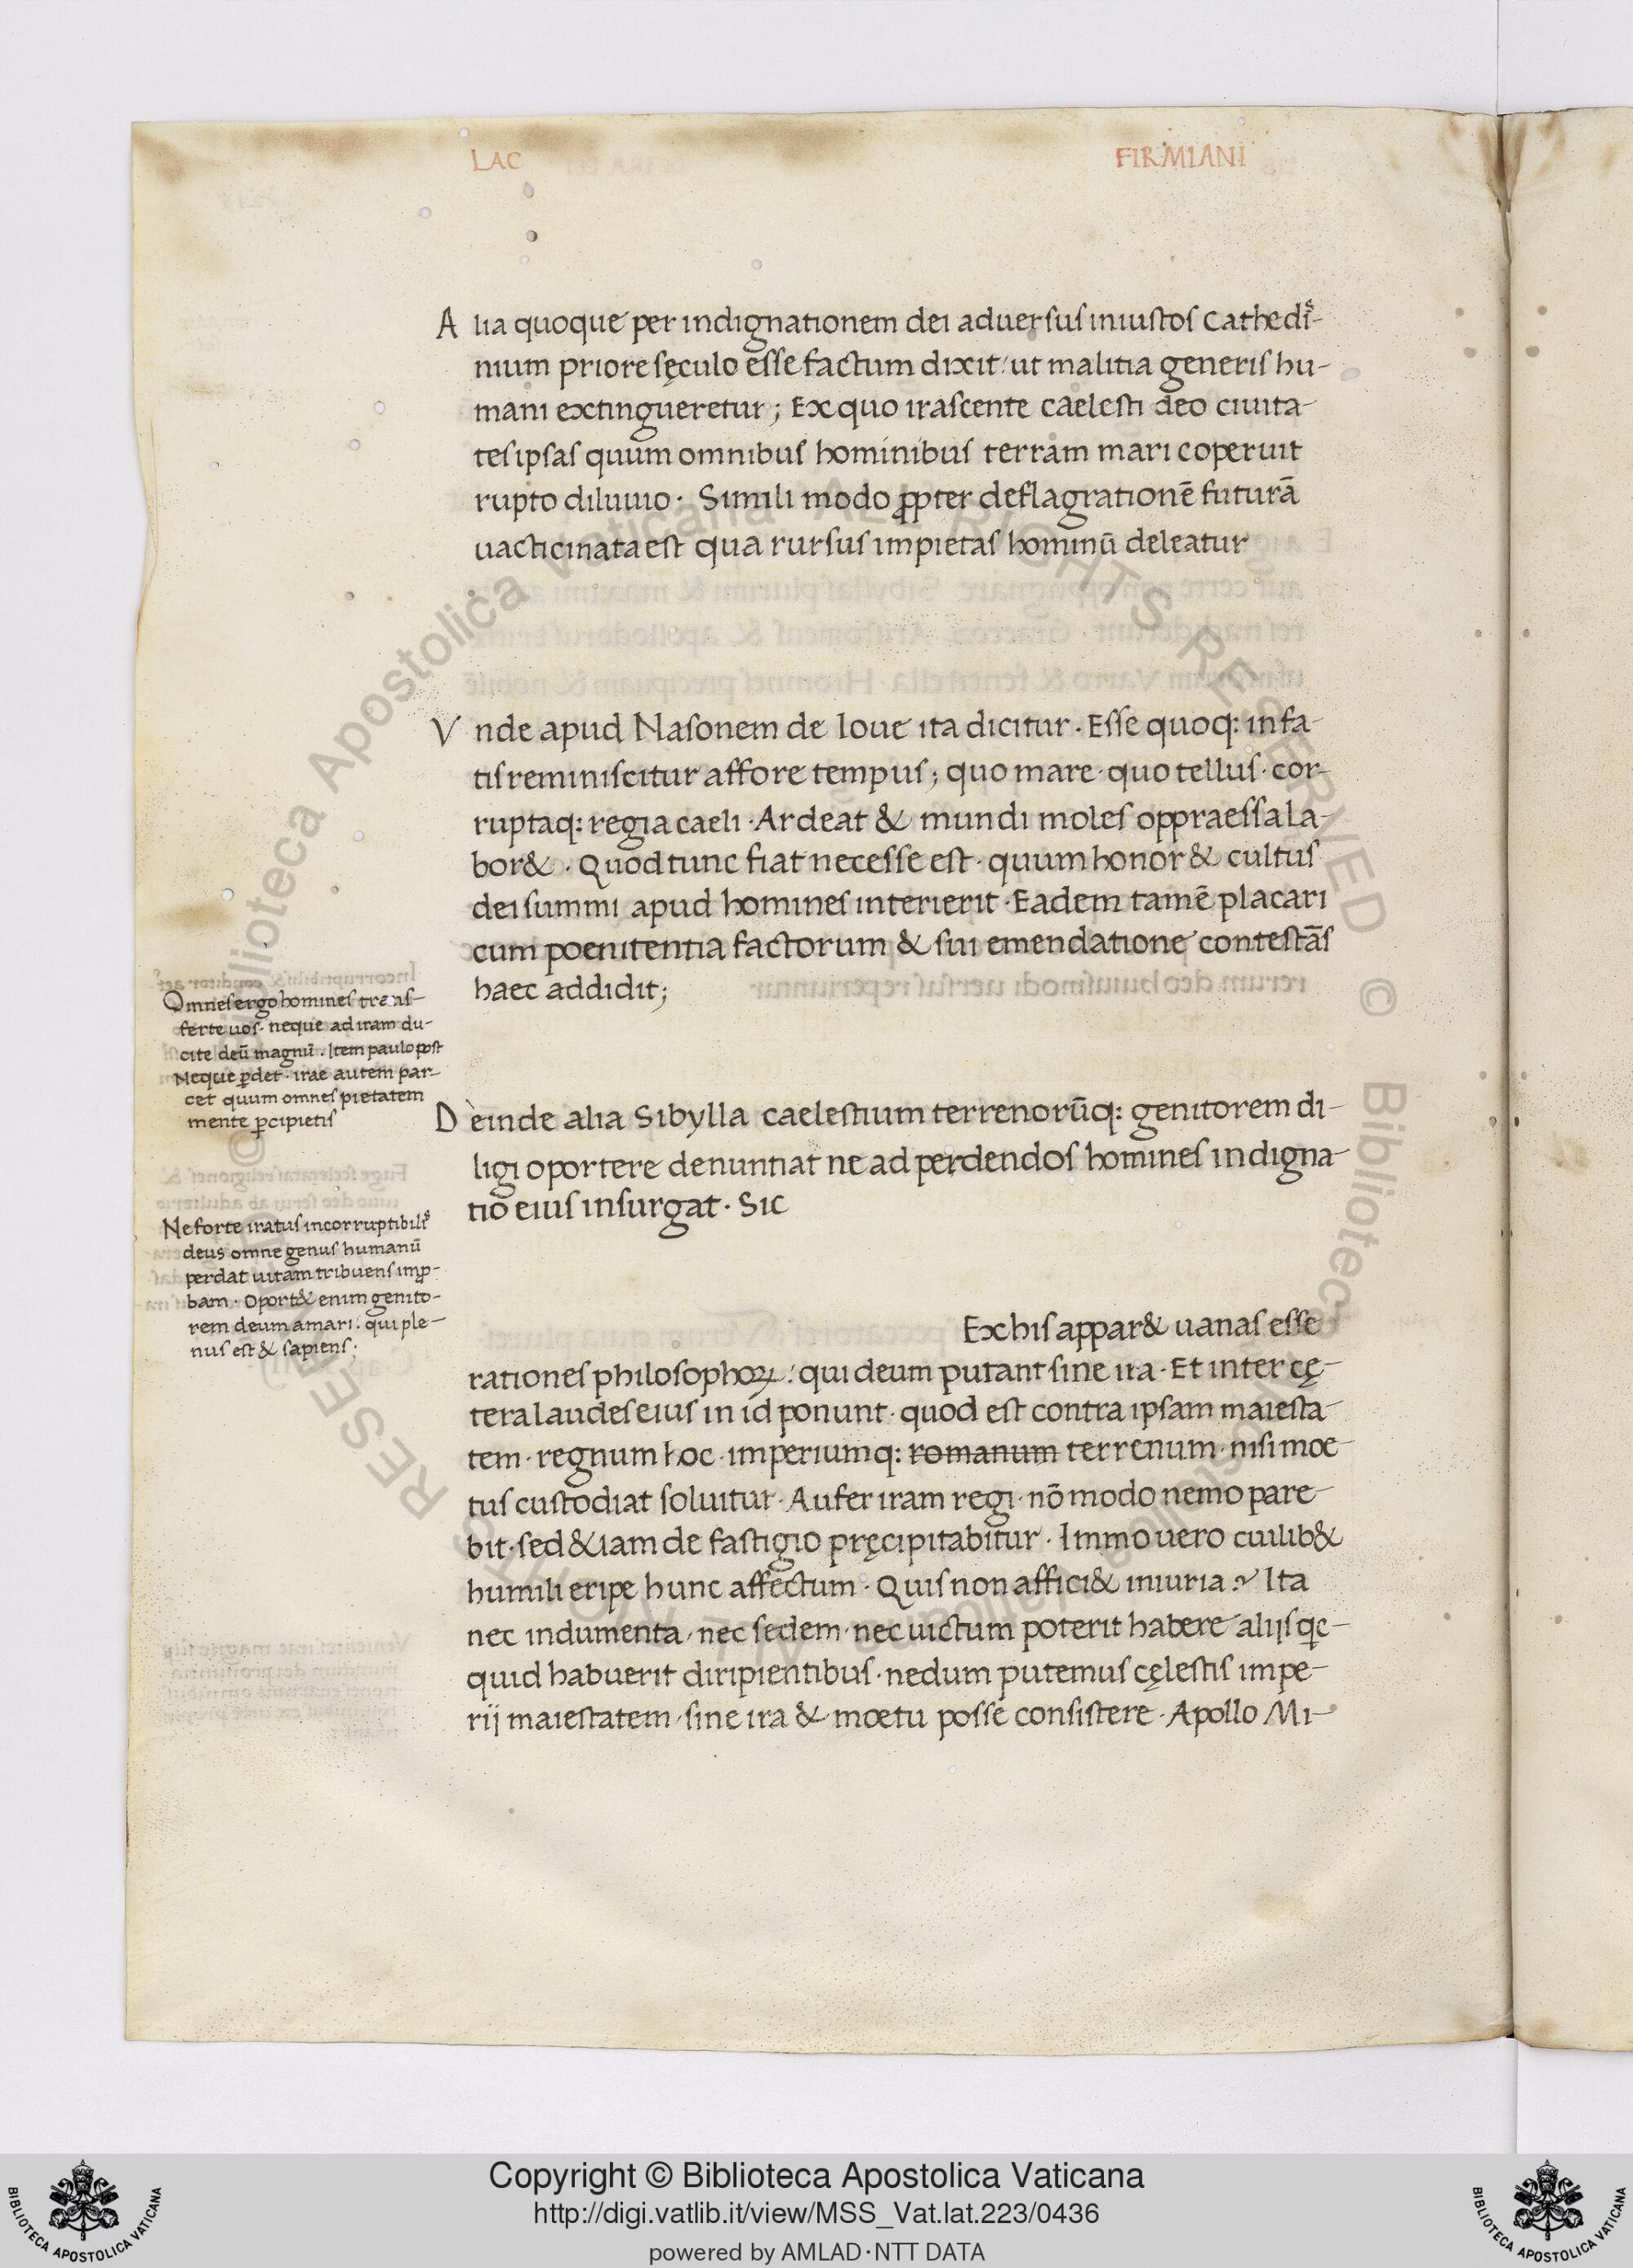 LAC FIRMIANI
Alia quoque per indignationem dei aduersus iniustos Cathedí-
nium priore sęculo esse factum dixit: ut malitia generis hu-
mani extingueretur; Ex quo irascente caelesti deo ciuita-
tes ipsas quum omnibus hominibus terram mari coperuit
rupto diluuio. Simili modo ꝓpter deflagrationē futurā
uacticinata est qua rursus impietas hominū deleatur
Vnde apud Nasonem de Ioue ita dicitur. Esse quoq: in fa-
tis reminiscitur affore tempus; quo mare· quo tellus· cor-
ruptaq: regia caeli· Ardeat & mundi moles oppraessa la-
bor&. Quod tunc fiat necesse est· quum honor & cultus
dei summi apud homines interierit· Eadem tamē placari
cum poenitentia factorum & sui emendatione contestās
haec addidit;
Omnes ergo homines trans-
ferte uos· neque ad iram du-
cite deū magnū. Item paulo post
Neque ꝑdet· irae autem par-
cet quum omnes pietatem
mente ꝑcipietis
Deinde alia Sibylla caelestium terrenorūq: genitorem di-
ligi oportere denuntiat ne ad perdendos homines indigna-
tio eius insurgat. Sic
Ne forte iratus incorruptibilis
deus omne genus humanū
perdat uitam tribuens imꝓ-
bam. Oport& enim genito-
rem deum amari. qui ple-
nus est & sapiens.
Ex his appar& uanas esse
rationes philosophoꝝ: qui deum putant sine ira· Et inter cę-
tera laudes eius in id ponunt· quod est contra ipsam maiesta-
tem· regnum hoc· imperiumq: romanum terrenum· nisi moe
tus custodiat soluitur· Aufer iram regi· nō modo nemo pare-
bit· sed &iam de fastigio pręcipitabitur· Immo uero cuilib&
humili eripe hunc affectum· Quis non affici& iniuria? Ita
nec indumenta· nec sedem· nec uictum poterit habere alijs qc-
quid habuerit diripientibus· nedum putemus cęlestis impe-
rij maiestatem· sine ira & moetu posse consistere· Apollo Mi-
Copyright © Biblioteca Apostolica Vaticana
http://digi.vatlib.it/view/MSS_Vat.lat.223/0436
powered by AMLAD·NTT DATA
BIBLIOTECA APOSTOLICA VATICANA
BIBLIOTECA APOSTOLICA VATICANA